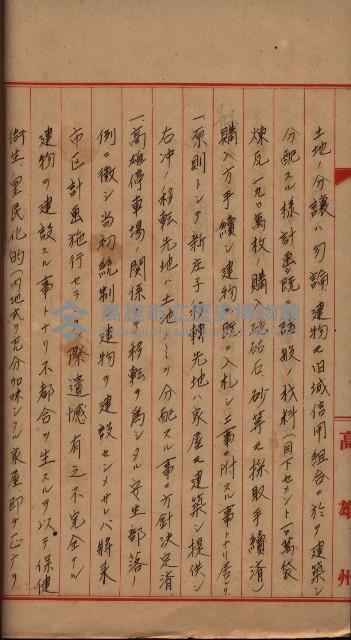 土地ノ分譲ハ勿論建物モ旧城信用組合ニ於テ建築シ
分配スル様計畫シ既ニ諸般材料（目下セメント一萬袋
煉瓦一九〇萬枚ノ購入硓𥑮石砂等モ採取手續濟）
購入方手續シ建物ハ既ニ入札シ工事ニ附スル事トナリ居レリ
一、原則トシテ新庄子移轉先地ハ家屋ヲ建築シ提供シ
右冲ノ移転先地ハ土地ノミヲ分配スル事ニ方針決定濟
一、高雄停車場ノ関係ニ移転ヲ為シタル安生部落ノ
例ニ徴シ当初統制建物ヲ建設センメザレバ将来
市区計畫施行セラルル際遺憾有之不完全ナル
建物ヲ建設スル事トナリ不都合ヲ生スルヲ以テ保健
衛生、皇民化的（内地式ヲ充分加味シタル家屋即チ正廳ナリ
高雄州
高雄市立歷史博物館